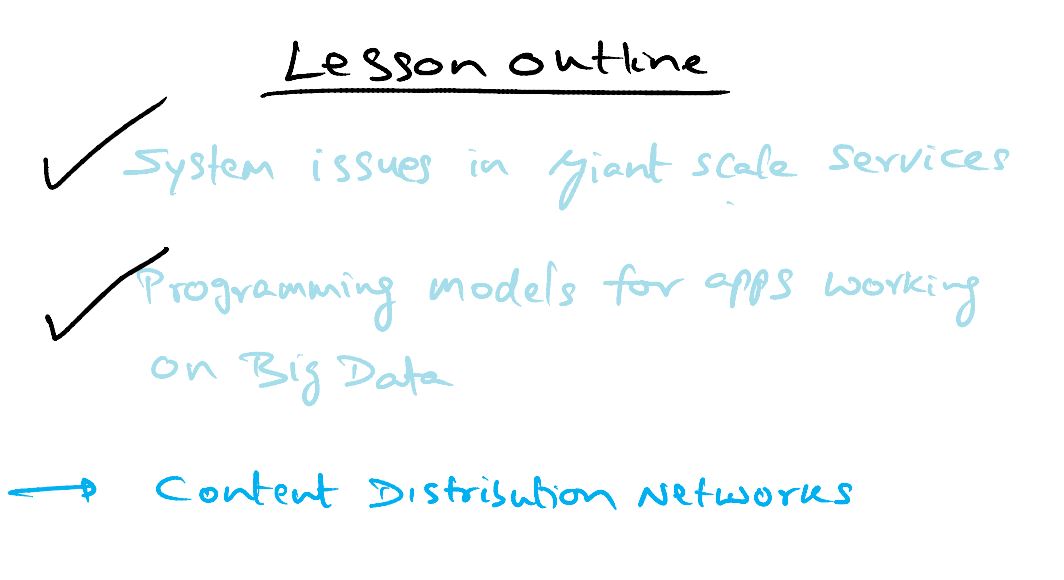 Lesson outline
System issues in giant scale services
Programming models for apps working
on Big Data
Content Distribution Networks